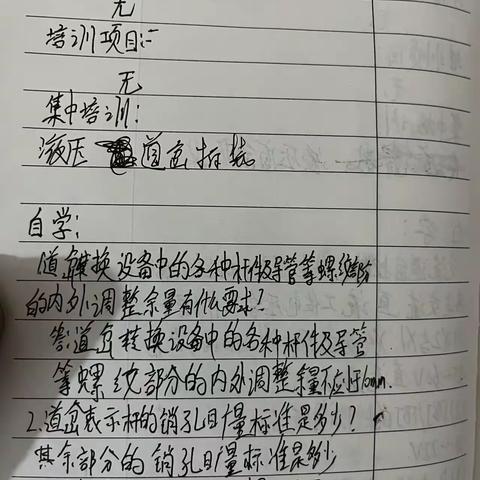 无
培训项目:
无
集中培训:
液压道岔拆装
自学:
1道岔转换设备中的各种杆件及导管等螺纹部分
的内外调整余量有什么要求?
答:道岔转换设备中的各种杆件及导管
等螺纹部分的内外调整余量不应小于10mm.
2.道岔表示杆的销孔旷量标准是多少?
其余部分的销孔旷量标准是多少